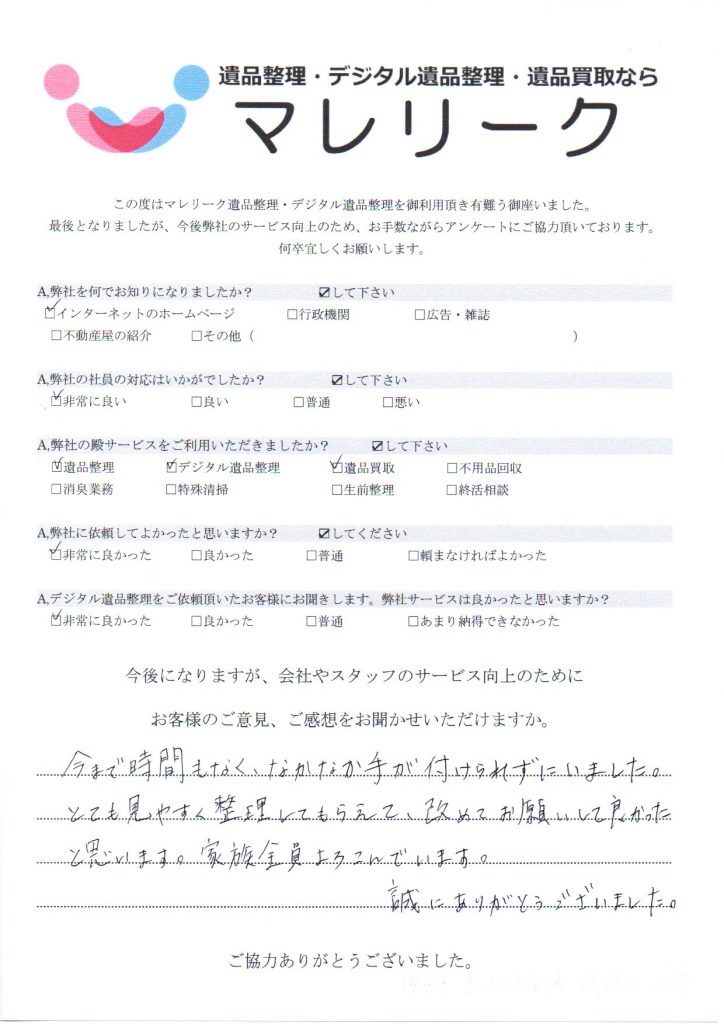 遺品整理・デジタル遺品整理・遺品買取なら
マレリーク
この度はマレリーク遺品整理・デジタル遺品整理を御利用頂き有難う御座いました。
最後となりましたが、今後弊社のサービス向上のため、お手数ながらアンケートにご協力頂いております。
何卒宜しくお願いします。
A,弊社を何でお知りになりましたか？ ☑して下さい
☑インターネットのホームページ □行政機関 □広告・雑誌
□不動産屋の紹介 □その他（ ）
A,弊社の社員の対応はいかがでしたか？ ☑して下さい
☑非常に良い □良い □普通 □悪い
A,弊社の殿サービスをご利用いただきましたか？ ☑して下さい
☑遺品整理 ☑デジタル遺品整理 ☑遺品買取 □不用品回収
□消臭業務 □特殊清掃 □生前整理 □終活相談
A,弊社に依頼してよかったと思いますか？ ☑してください
☑非常に良かった □良かった □普通 □頼まなければよかった
A,デジタル遺品整理をご依頼頂いたお客様にお聞きします。弊社サービスは良かったと思いますか？
☑非常に良かった □良かった □普通 □あまり納得できなかった
今後になりますが、会社やスタッフのサービス向上のために
お客様のご意見、ご感想をお聞かせいただけますか。
今まで時間もなく、なかなか手が付けられずにいました。
とても見やすく整理してもらえて、改めてお願いして良かった
と思います。家族全員よろこんでいます。
誠にありがとうございました。
ご協力ありがとうございました。